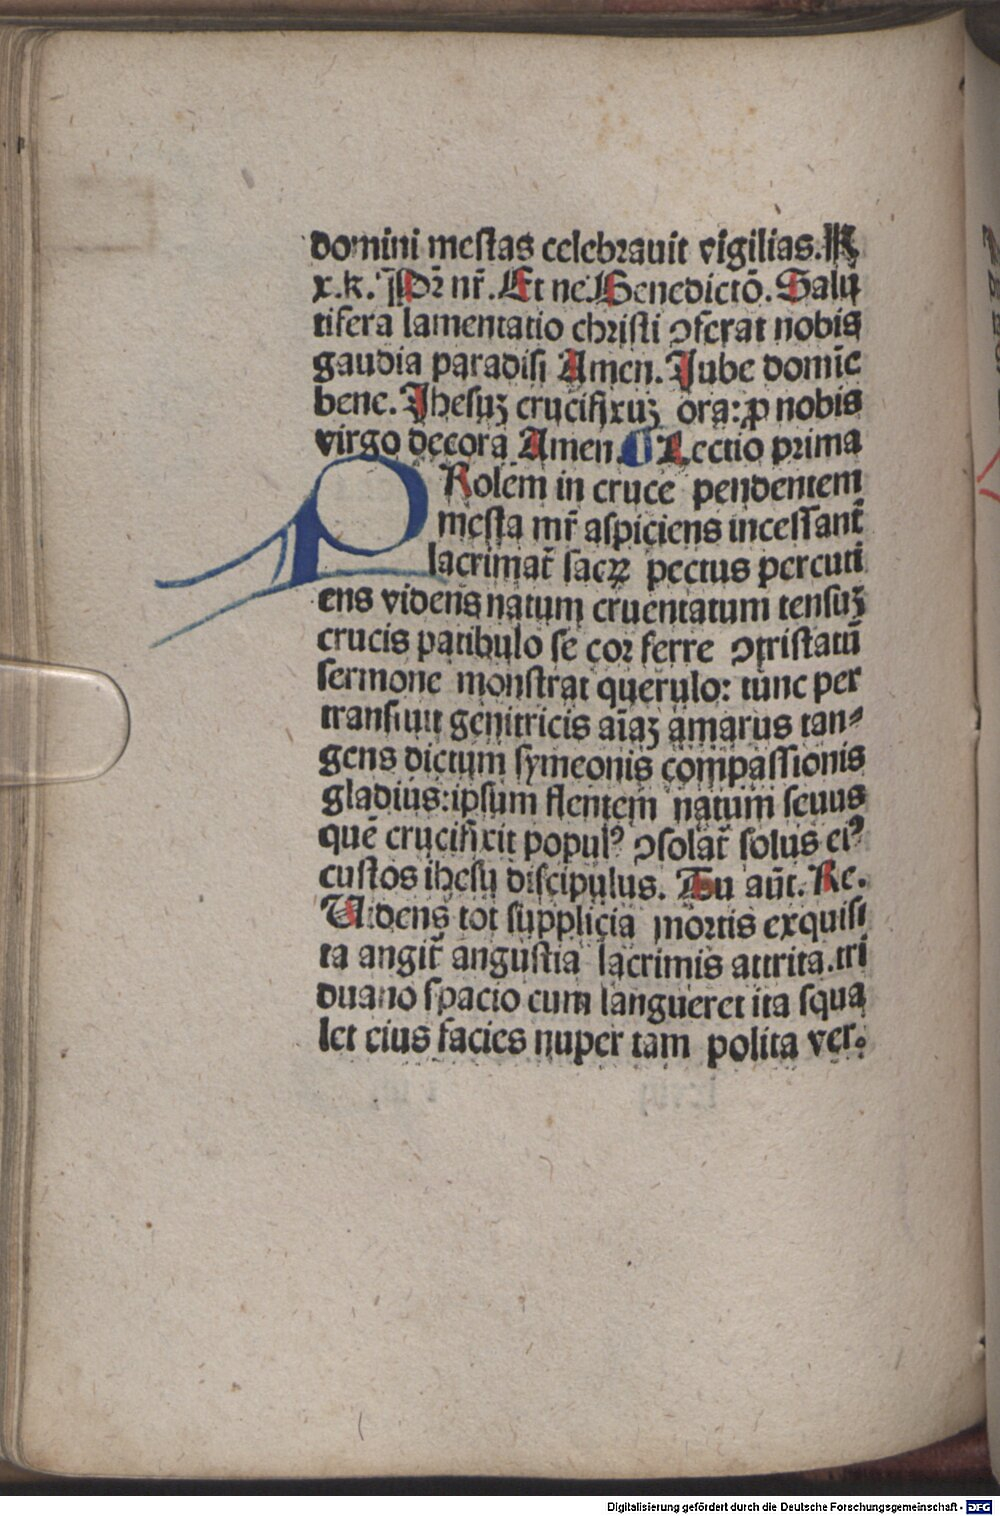 domini mestas celebrauit vigilias. K
x.k. Pr̄ nr̄. Et ne. Benedictō. Salu
tifera lamentatio christi ↄferat nobis
gaudia paradisi Amen. Iube domīe
bene. Ihesuꝫ crucifixuꝫ ora: ꝓ nobis
virgo decora Amen. ¶ Lectio prima
PRolem in cruce pendentem
mesta mr̄ aspiciens incessant᷑
lacrimat᷑ sacꝝ pectus percuti
ens videns natum cruentatum tensuꝫ
crucis patibulo se cor ferre ↄtristatū
sermone monstrat querulo: tunc per
transiuit genitricis aīaꝫ amarus tan⸗
gens dictum symeonis compassionis
gladius: ipsum flentem natum seuus
quē crucifixit popul⁹ ↄsolat᷑ solus ei⁹
custos ihesu discipulus. Tu aūt. Re.
Uidens tot supplicia mortis exquisi
ta angit᷑ angustia lacrimis attrita. tri
duano spacio cum langueret ita squa
let eius facies nuper tam polita ver.
Digitalisierung gefördert durch die Deutsche Forschungsgemeinschaft - DFG